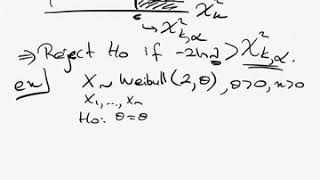 χ²ₖ
χ²ₖ,α
⇒ Reject Ho if -2lnλ > χ²ₖ,α.
ex) X ~ Weibull(2, θ), θ>0, x>0
X₁, ..., Xₙ
Ho: θ=θ